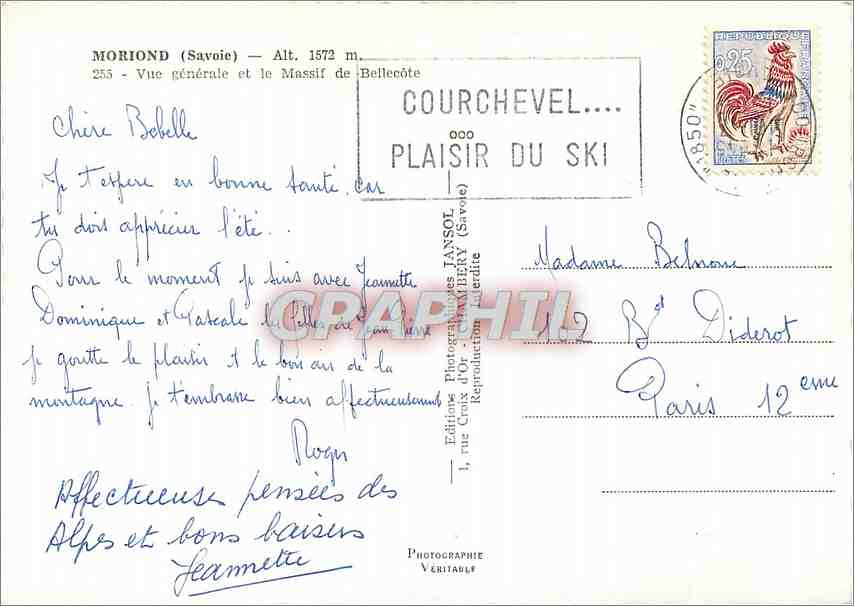 MORIOND (Savoie) — Alt. 1572 m.
255 - Vue générale et le Massif de Bellecôte
COURCHEVEL....
PLAISIR DU SKI
REPUBLIQUE FRANÇAISE
0,25
POSTES
"1850"
Chère Babelle
Je t'espère en bonne santé, car
tu dois apprécier l'été...
Pour le moment je suis avec Jeannette
Dominique et Pascale les filles de Jean Pierre
je goutte le plaisir et le bon air de la
montagne. je t'embrasse bien affectueusement
Roger
Affectueuses pensées des
Alpes et bons baisers
Jeannette
Editions Photographiques JANSOL
1, rue Croix d'Or - CHAMBERY (Savoie)
Reproduction Interdite
CPAPHIL
Madame
162 Bd Diderot
Paris 12 eme
PHOTOGRAPHIE
VÉRITABLE